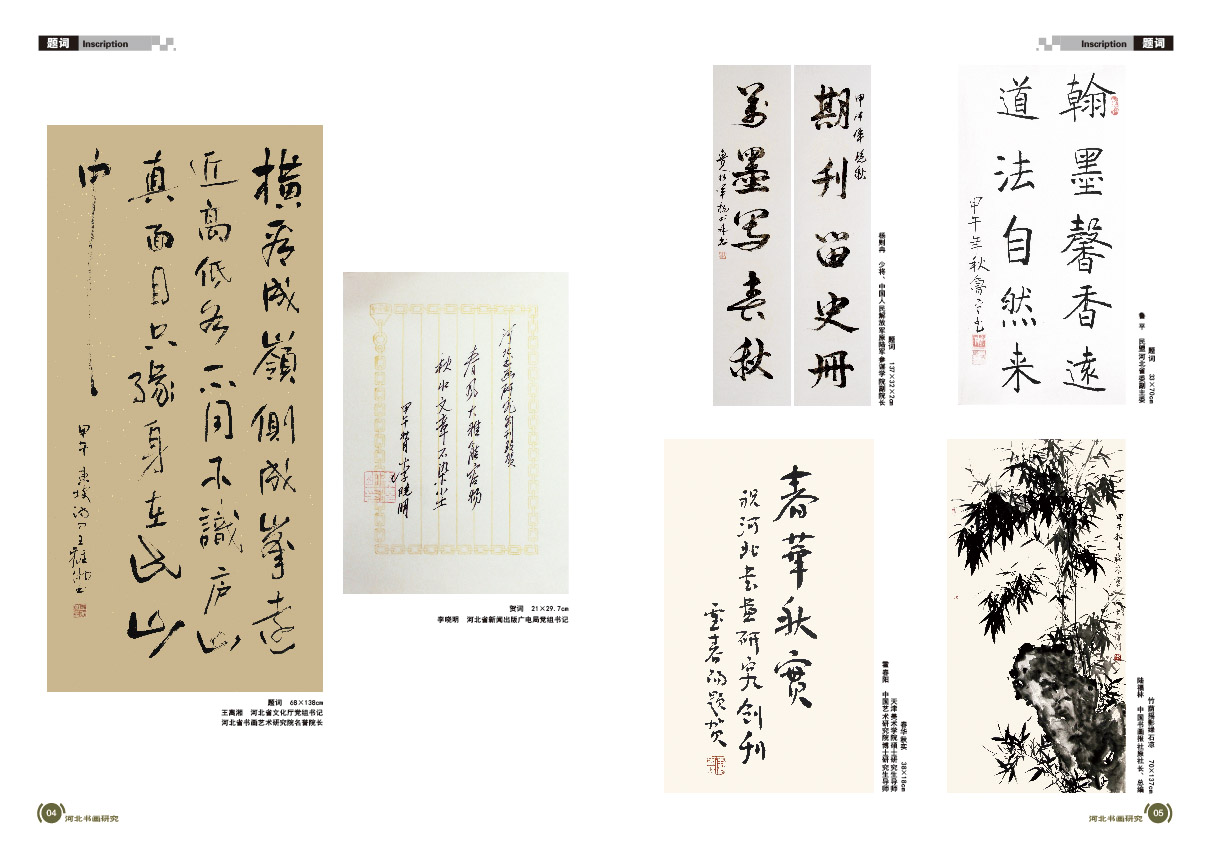 题词 Inscription
橫看成嶺側成峯遠
近高低各不同不識庐山
真面目只緣身在此山
中
甲午 東坡
题词 68×138cm
王离湘 河北省文化厅党组书记
河北省书画艺术研究院名誉院长
河北书画研究创刊致贺
春风大雅能容物
秋水文章不染尘
甲午 李晓明
贺词 21×29.7cm
李晓明 河北省新闻出版广电局党组书记
04 河北书画研究
Inscription 题词
期刊留史册
翰墨写春秋
题词 137×32×2cm
杨则冉 少将、中国人民解放军原陆军参谋学院副院长
翰墨馨香遠
道法自然来
题词 33×70cm
鲁平 民盟河北省委副主委
春華秋實
祝河北书画研究创刊
霍春阳题贺
春华秋实 38×18cm
天津美术学院硕士研究生导师
霍春阳 中国艺术研究院博士研究生导师
竹荫摇影绿石凉 70×137cm
陆德林 中国书画报社原社长、总编
河北书画研究 05